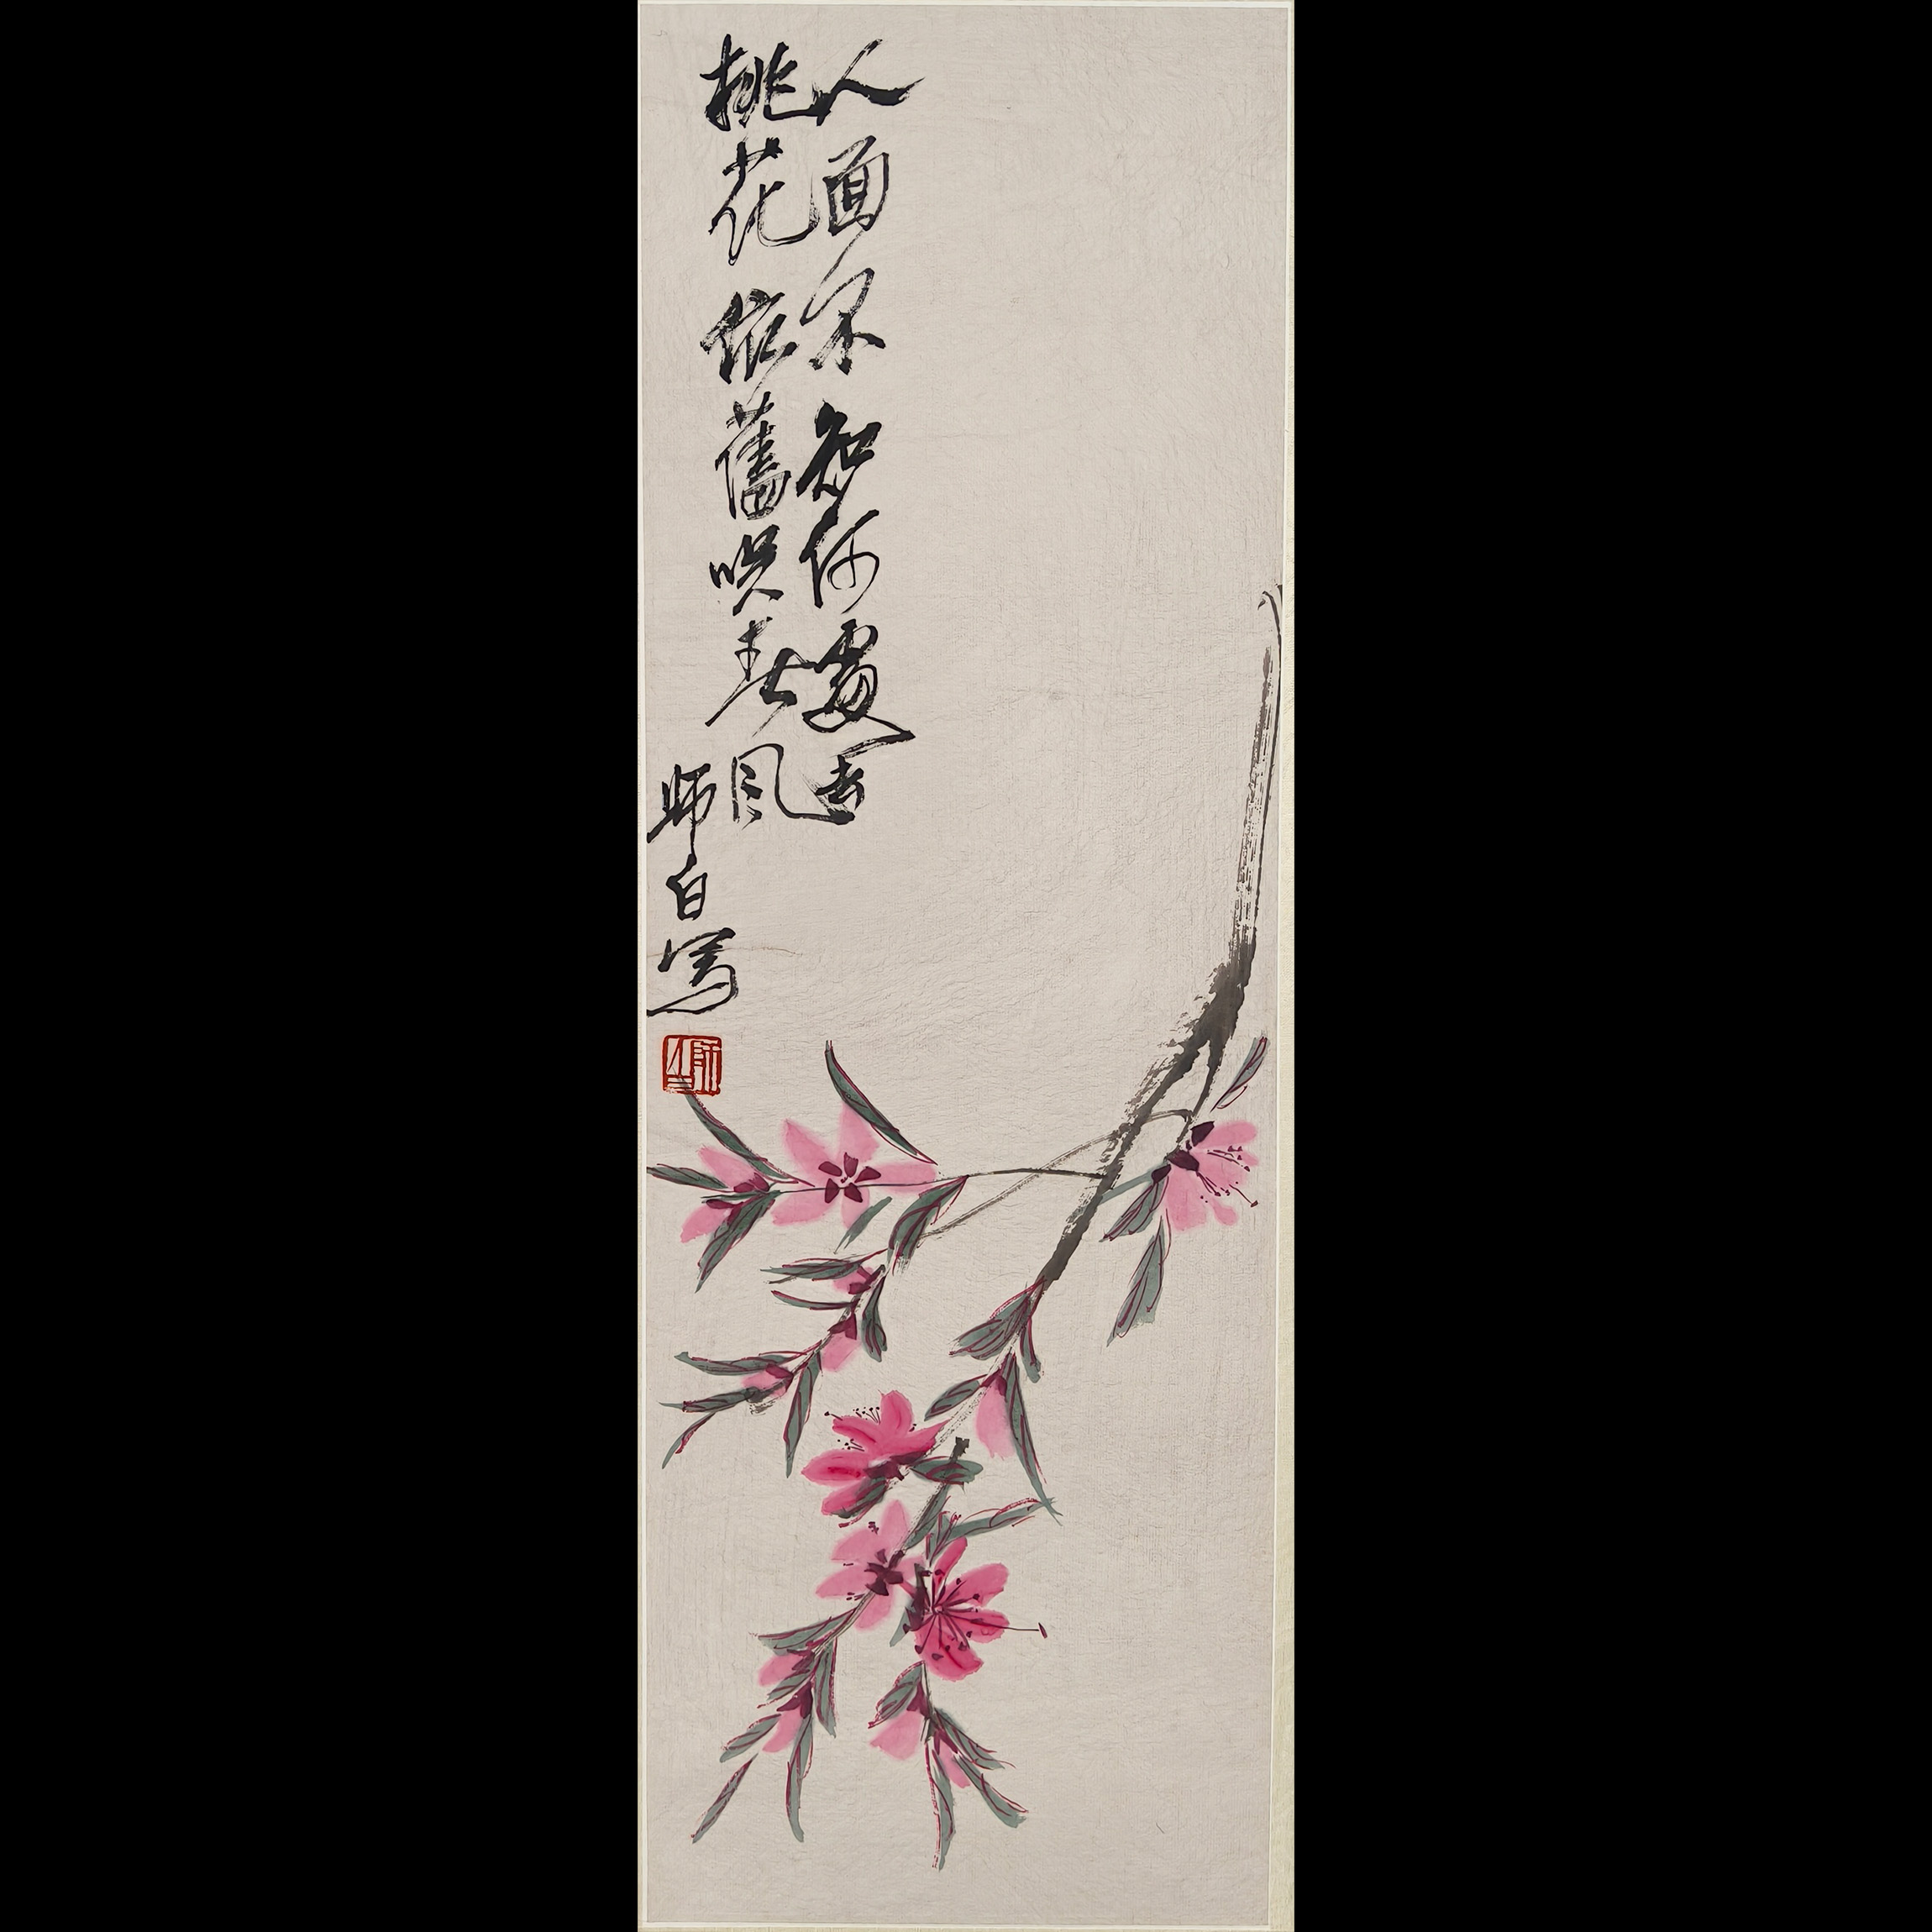 人面不知何處去
桃花依舊咲春風
师白寫